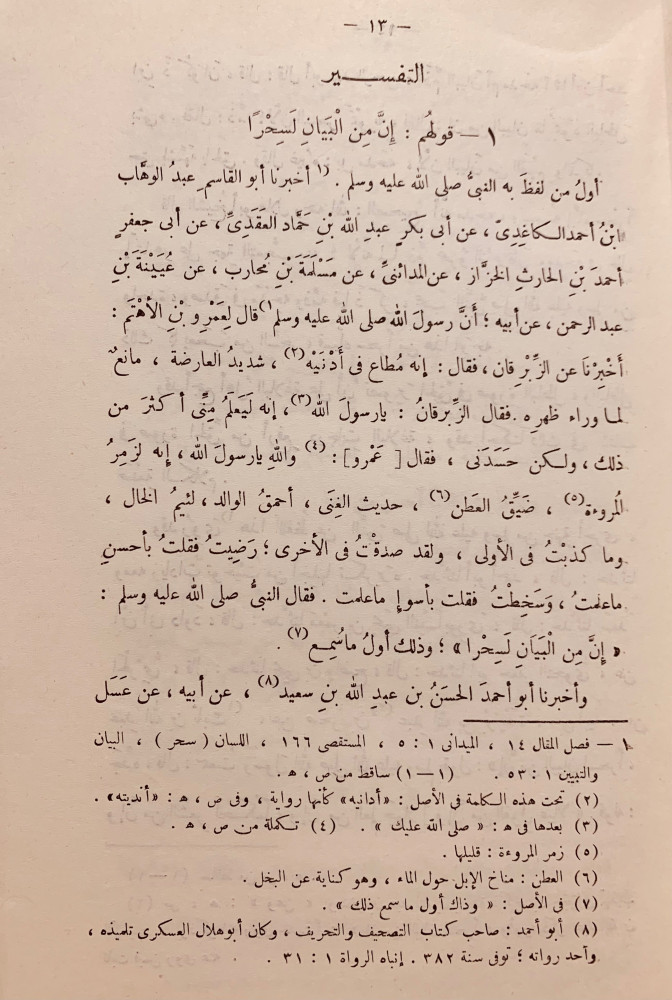 — ١٣ —
التفسـير
١ — قولهُم : إِنَّ مِنَ الْبَيَانِ لَسِحْرًا
أولُ من لفظَ به النبىُّ صلى الله عليه وسلم . (١ أخبرنا أبو القاسم عبدُ الوهَّاب
ابْنُ أحمد الكاغِدِىّ ، عن أبى بكرٍ عبدِ الله بْنِ حَمَّاد العَقَدِىِّ ، عن أبى جعفرٍ
أحمدَ بْنِ الحارثِ الخزَّاز ، عن المدائنىِّ ، عن مَسْلَمَةَ بْنِ مُحارب ، عن عُيَيْنَةَ بْنِ
عبد الرحمن ، عن أبيه ؛ أَنَّ رسولَ الله صلى الله عليه وسلم ١) قال لِعَمْرِو بْنِ الأَهْتَم :
أَخْبِرْنَا عن الزِّبْرِقان ، فقال : إنه مُطاع فى أَدْنَيْه (٢) ، شديدُ العارضة ، مانعٌ
لما وراء ظهرِه . فقال الزِّبرقانُ : يارسولَ الله (٣) ، إنه لَيَعْلَمُ مِنِّى أكثرَ من
ذلك ، ولكن حَسَدَنى ، فقال [ عَمْرو ] : (٤) واللهِ يارسولَ الله ، إنه لزَمِرُ
المُروءة (٥) ، ضَيِّقُ العَطَن (٦) ، حديث الغِنَى ، أحمقُ الوالد ، لئيمُ الخال ،
وما كذبْتُ فى الأولى ، ولقد صدقْتُ فى الأخرى ؛ رَضِيتُ فقلتُ بأحسنِ
ماعلمتُ ، وَسَخِطْتُ فقلت بأسوإِ ماعلمت . فقال النبىُّ صلى الله عليه وسلم :
« إِنَّ مِنَ الْبَيَانِ لَسِحْرا » ؛ وذلك أولُ ماسُمِع (٧) .
وأخبرنا أبو أحمدَ الحسَنُ بن عبدِ الله بنِ سعيد (٨) ، عن أبيه ، عن عَسَل
١ — فصل المقال ١٤ ، الميدانى ١ : ٥ ، المستقصى ١٦٦ ، اللسان ( سحر ) ، البيان
والتبيين ١ : ٥٣ . (١—١) ساقط من ص ، ه .
(٢) تحت هذه الكلمة فى الأصل : «أدانيه» كأنها رواية ، وفى ص ، ه : «أنديته» .
(٣) بعدها فى ه : « صلى الله عليك » . (٤) تكملة من ص ، ه .
(٥) زمر المروءة : قليلها .
(٦) العطن : مناخ الإبل حول الماء ، وهو كناية عن البخل .
(٧) فى الأصل : « وذاك أول ما سمع ذلك » .
(٨) أبو أحمد : صاحب كتاب التصحيف والتحريف ، وكان أبوهلال العسكرى تلميذه ،
وأحد رواته ؛ توفى سنة ٣٨٢ . إنباه الرواة ١ : ٣١ .